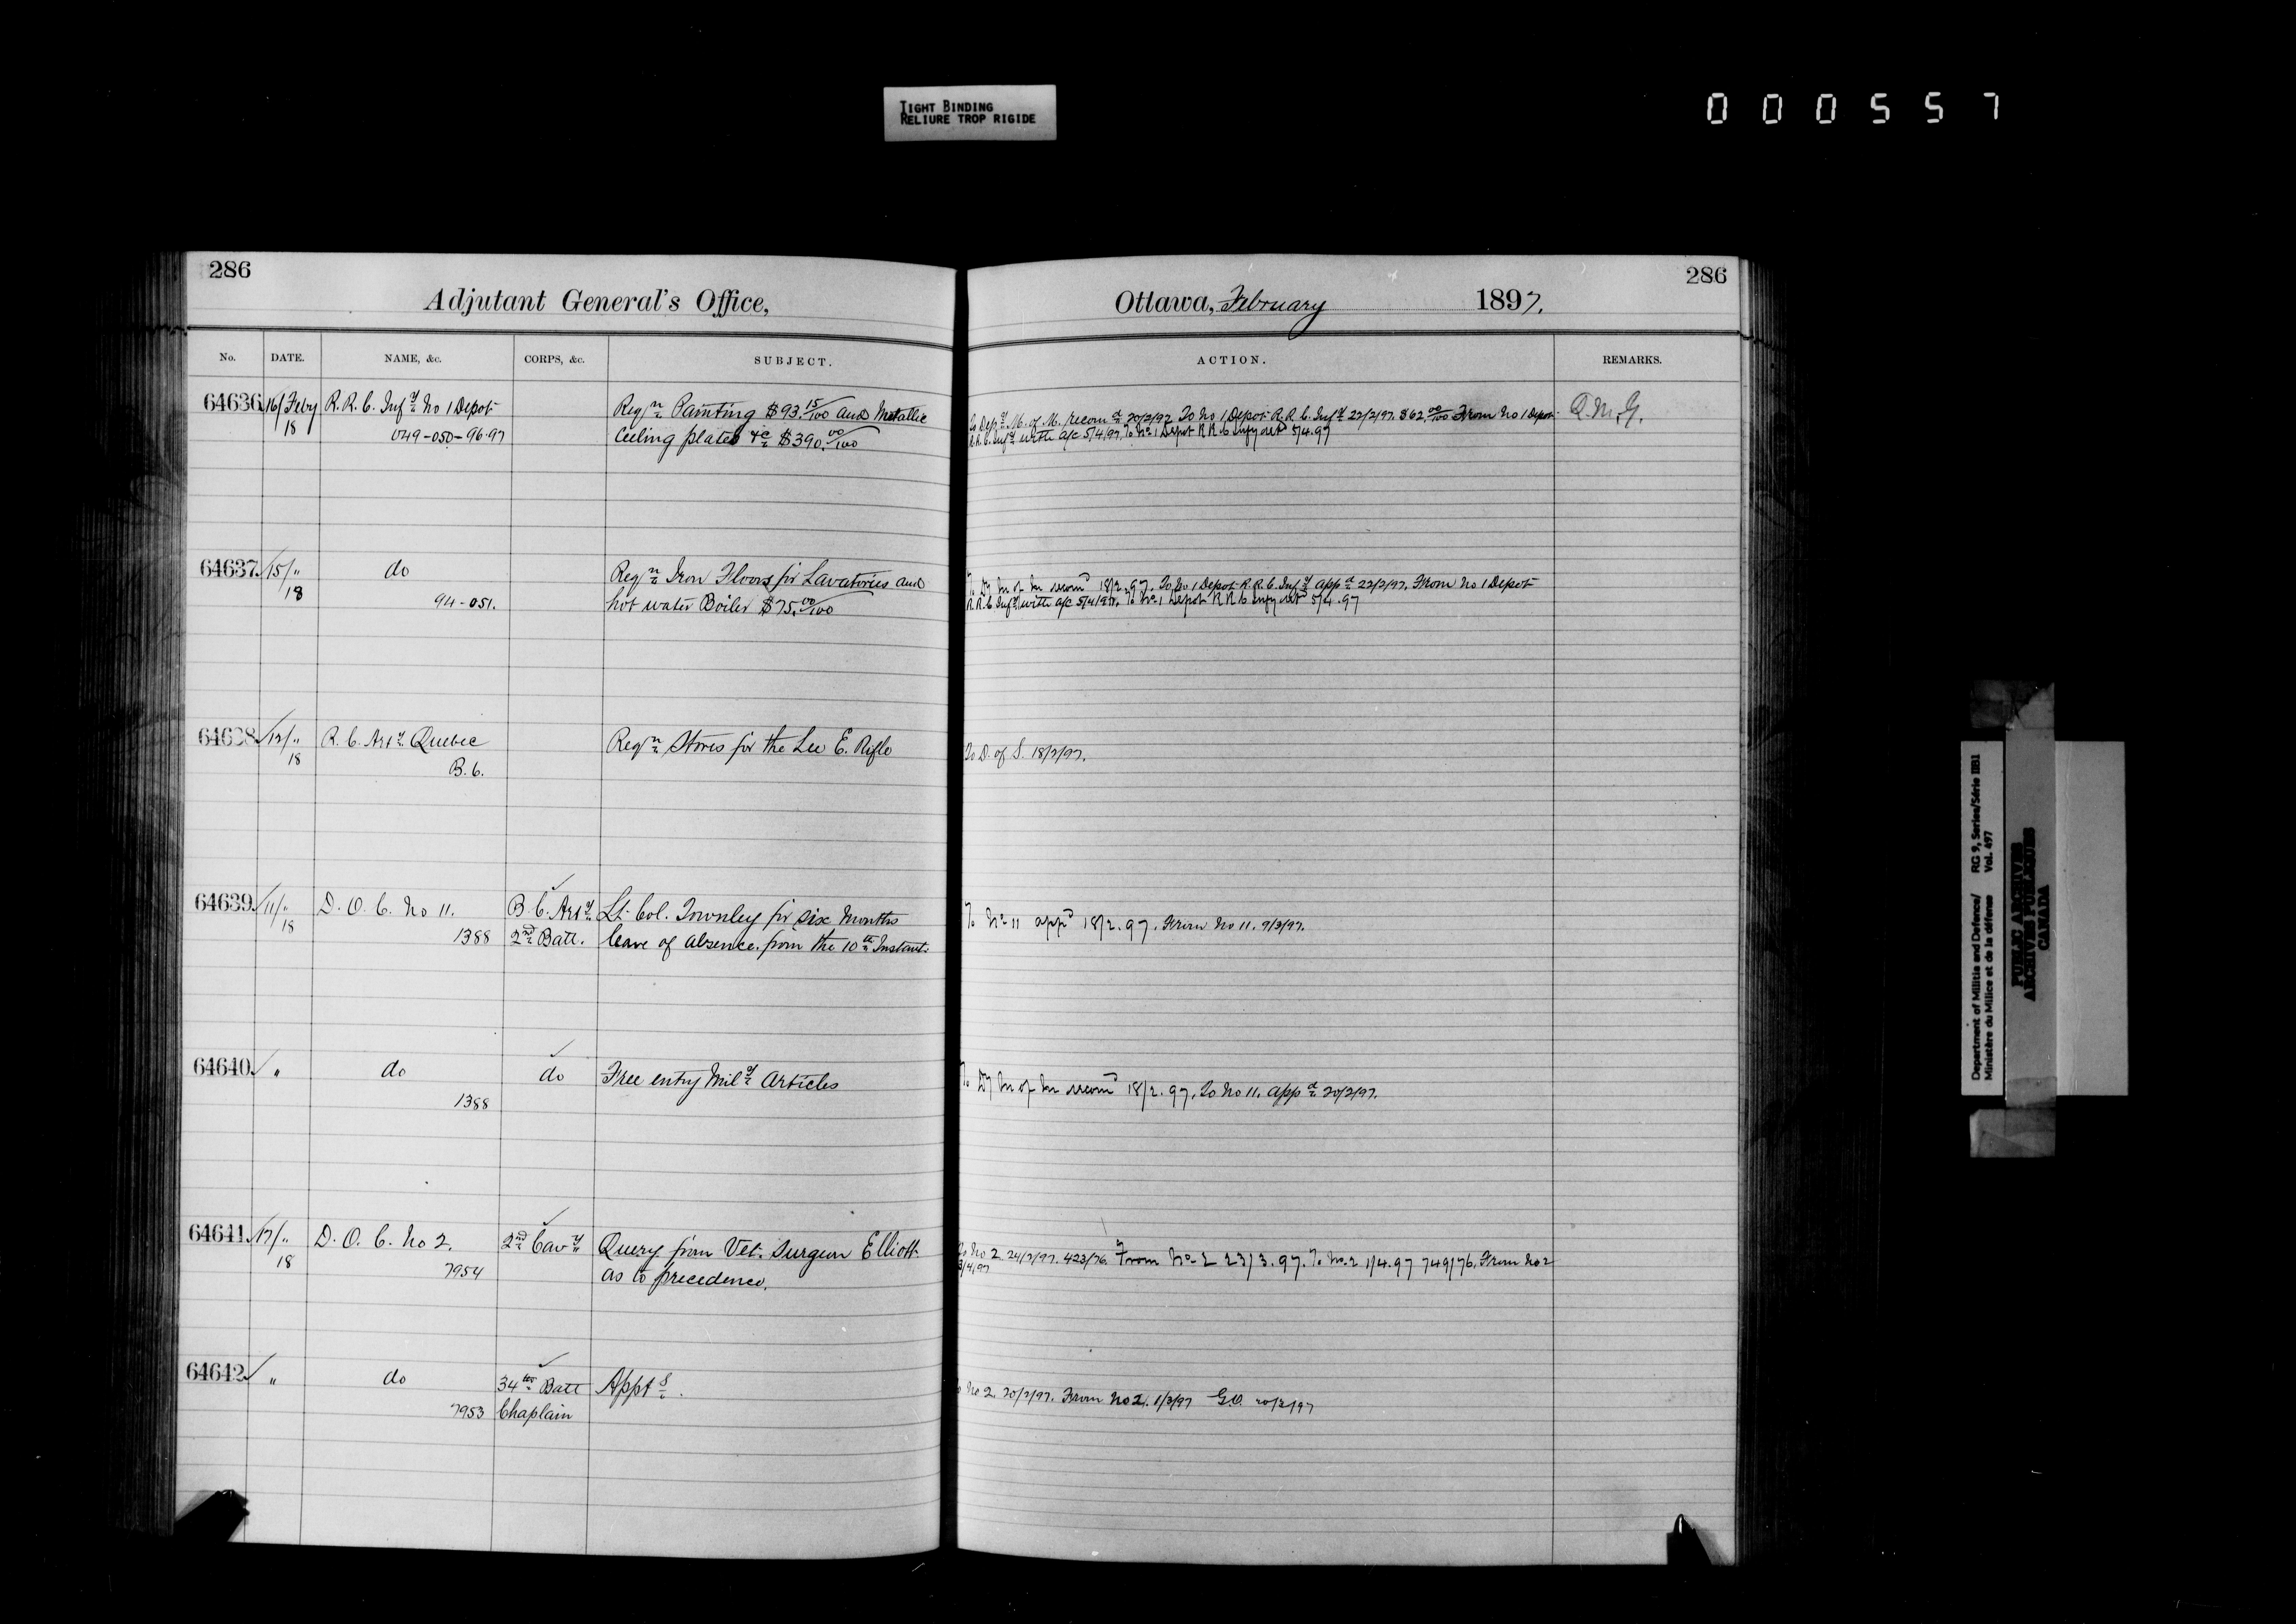 TIGHT BINDING
RELIURE TROP RIGIDE
000557
286
Adjutant General's Office,
No. DATE. NAME, &c. CORPS, &c. SUBJECT.
64636 16/Feby R.R.C. Infy No 1 Depot Reqn Painting $93.15/100 and Metallic
18 049-050-96.97 Ceiling plates &c $390.00/100
64637 15/" do Reqn Iron Floors for Lavatories and
18 94-051. hot water Boiler $75.00/100
64638 17/" R.C. Arty Quebec Reqn Stores for the Lee E. Rifle
18 B.6.
64639 11/" D.O.C. No 11. B.C. Arty Lt. Col. Townley for six Months
18 1388 2nd Batt. leave of absence from the 10th Instant.
64640 " do do Free entry Mily Articles
1388
64641 17/" D.O.C. No 2. 2nd Cavy Query from Vet. Surgeon Elliott
18 7954 as to precedence.
64642 " do 34th Batt Appts.
7953 Chaplain
286
Ottawa, February 1897.
ACTION. REMARKS.
To Depy M. of M. recomd 20/2/97. To No 1 Depot R.R.C. Infy 22/2/97. $62.00/100 From No 1 Depot Q.M.G.
R.R.C. Infy with a/c 5/4/97. To No 1 Depot R R C Infy retd 5/4.97
To Dy M of M recomd 18/2.97. To No 1 Depot R.R.C. Infy appd 22/2/97. From No 1 Depot
R.R.C. Infy with a/c 5/4/97. To No 1 Depot R R C Infy retd 5/4.97
To D. of S. 18/2/97.
To No 11 appd 18/2.97. From No 11. 9/3/97.
To Dy M of M recomd 18/2.97. To No 11. appd 20/2/97.
To No 2. 24/2/97. 423/76. From No 2 23/3.97. To No. 2 1/4.97 749/76. From No 2
3/4/97
No 2. 20/2/97. From No 2. 1/3/97 G.O.
Department of Militia and Defence/ RG 9, Series/Série IIB1
Ministère du Milice et de la défense Vol. 497
PUBLIC ARCHIVES
ARCHIVES PUBLIQUES
CANADA